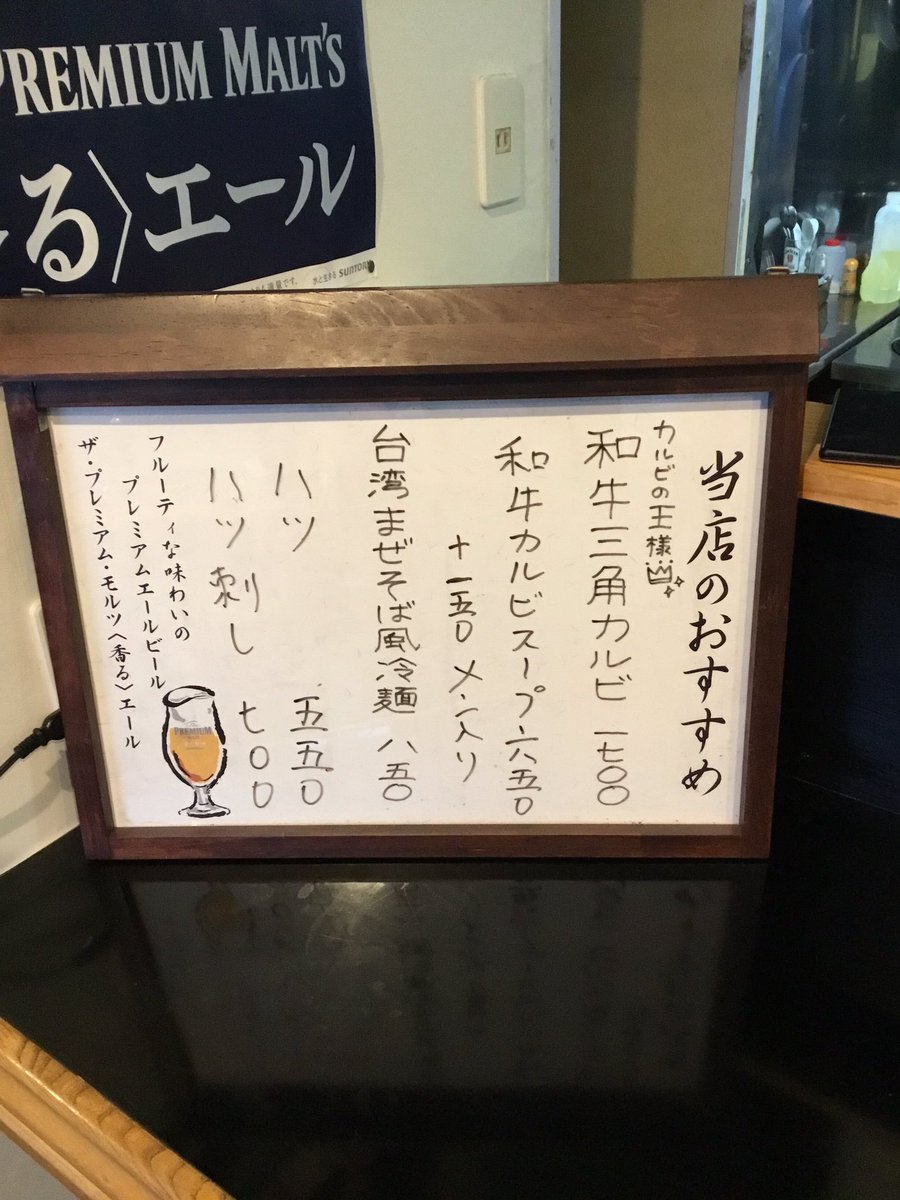 PREMIUM MALT'S
る〉エール
水と生きる SUNTORY
当店のおすすめ
カルビの王様
和牛三角カルビ 一七〇〇
和牛カルビスープ 六五〇
+一五〇 メン入り
台湾まぜそば風冷麺 八五〇
ハツ 五五〇
ハツ刺し 七〇〇
フルーティな味わいの
プレミアムエールビール
ザ・プレミアム・モルツ〈香る〉エール
The PREMIUM